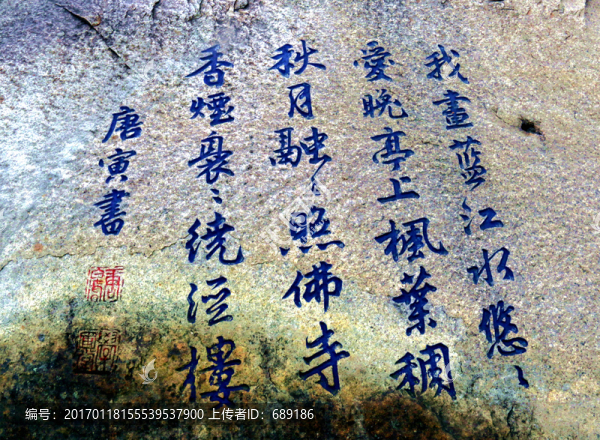 我畫藍江水悠〻
愛晚亭上楓葉稠
秋月融〻照佛寺
香煙裊〻繞涇樓
唐寅書
编号：20170118155539537900 上传者ID：689186